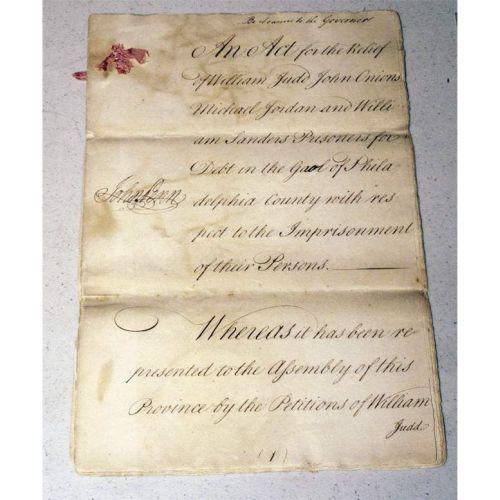 Be it sent to the Governor
An Act for the Relief
of William Judd John Onions
Michael Jordan and Willi
am Sanders Prisoners for
Debt in the Gaol of Phila
delphia County with res
pect to the Imprisonment
of their Persons.
John Penn
Whereas it has been re
presented to the Assembly of this
Province by the Petitions of William
Judd
(1)